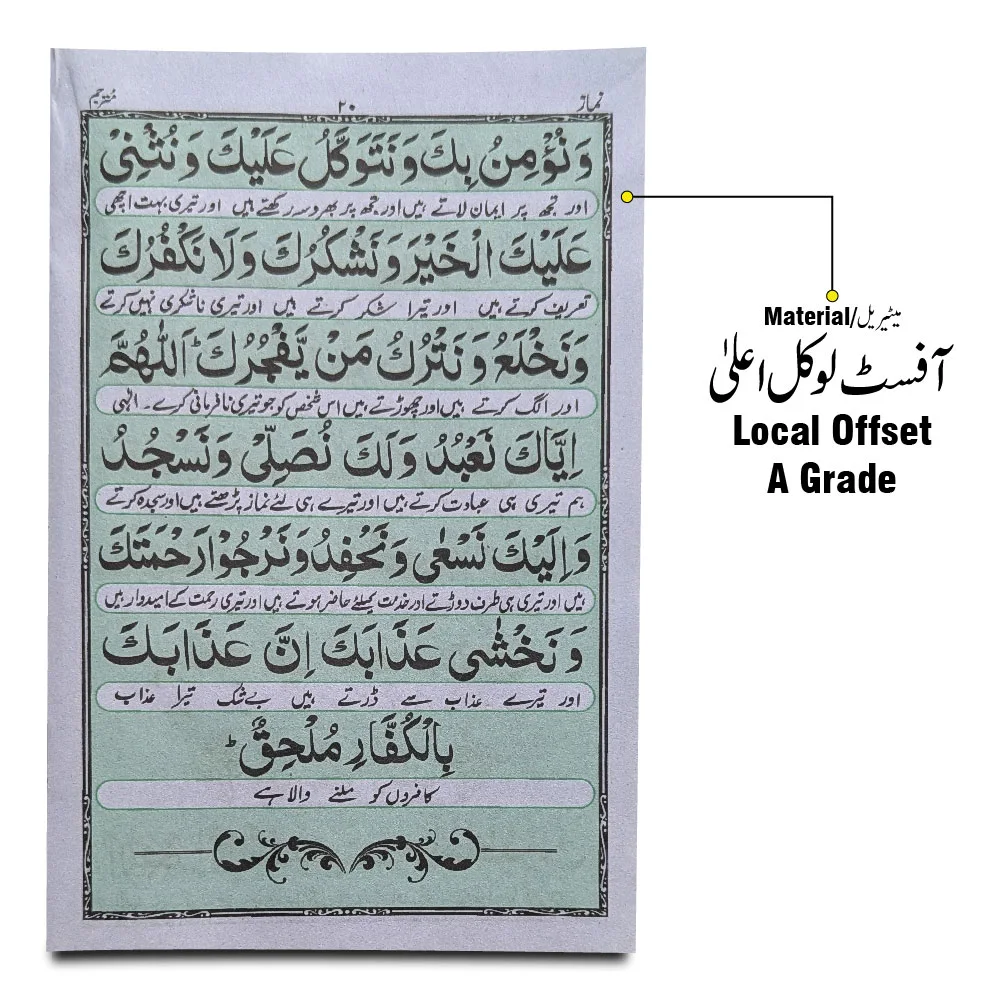 نماز ۲۰ مترجم
وَنُؤْمِنُ بِكَ وَنَتَوَكَّلُ عَلَيْكَ وَنُثْنِیْ
اور تجھ پر ایمان لاتے ہیں اور تجھ پر بھروسہ رکھتے ہیں اور تیری بہت اچھی
عَلَيْكَ الْخَيْرَ وَنَشْكُرُكَ وَلَا نَكْفُرُكَ
تعریف کرتے ہیں اور تیرا شکر کرتے ہیں اور تیری ناشکری نہیں کرتے
وَنَخْلَعُ وَنَتْرُكُ مَنْ يَّفْجُرُكَ ؕ اَللّٰهُمَّ
اور الگ کرتے ہیں اور چھوڑتے ہیں اس شخص کو جو تیری نافرمانی کرے۔ الٰہی
اِيَّاكَ نَعْبُدُ وَلَكَ نُصَلِّیْ وَنَسْجُدُ
ہم تیری ہی عبادت کرتے ہیں اور تیرے ہی لئے نماز پڑھتے ہیں اور سجدہ کرتے
وَاِلَيْكَ نَسْعٰی وَنَحْفِدُ وَنَرْجُوْا رَحْمَتَكَ
ہیں اور تیری ہی طرف دوڑتے اور خدمت کیلئے حاضر ہوتے ہیں اور تیری رحمت کے امیدوار ہیں
وَنَخْشٰی عَذَابَكَ اِنَّ عَذَابَكَ
اور تیرے عذاب سے ڈرتے ہیں بے شک تیرا عذاب
بِالْكُفَّارِ مُلْحِقٌ ؕ
کافروں کو ملنے والا ہے
Material/میٹیریل
آفسٹ لوکل اعلیٰ
Local Offset
A Grade